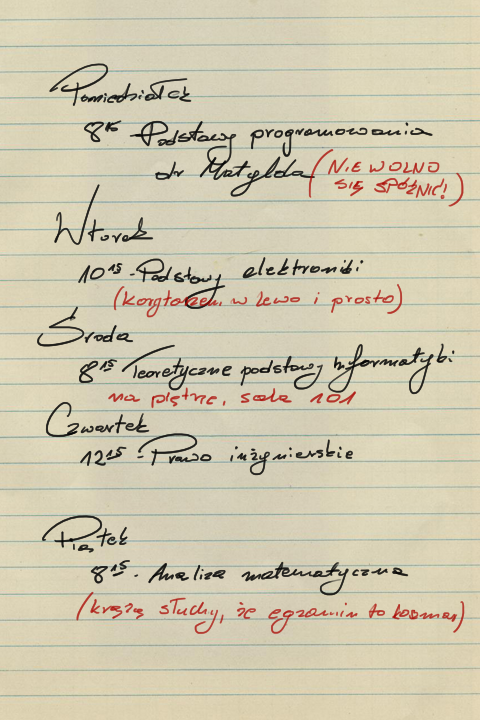 Poniedziałek
8¹⁵ - Podstawy programowania
dr Matylda (NIE WOLNO
SIĘ SPÓŹNIĆ!)
Wtorek
10¹⁵ - Podstawy elektroniki
(korytarzem w lewo i prosto)
Środa
8¹⁵ Teoretyczne podstawy informatyki
na piętrze, sala 101
Czwartek
12¹⁵ - Prawo inżynierskie
Piątek
8¹⁵ - Analiza matematyczna
(krążą słuchy, że egzamin to koszmar)